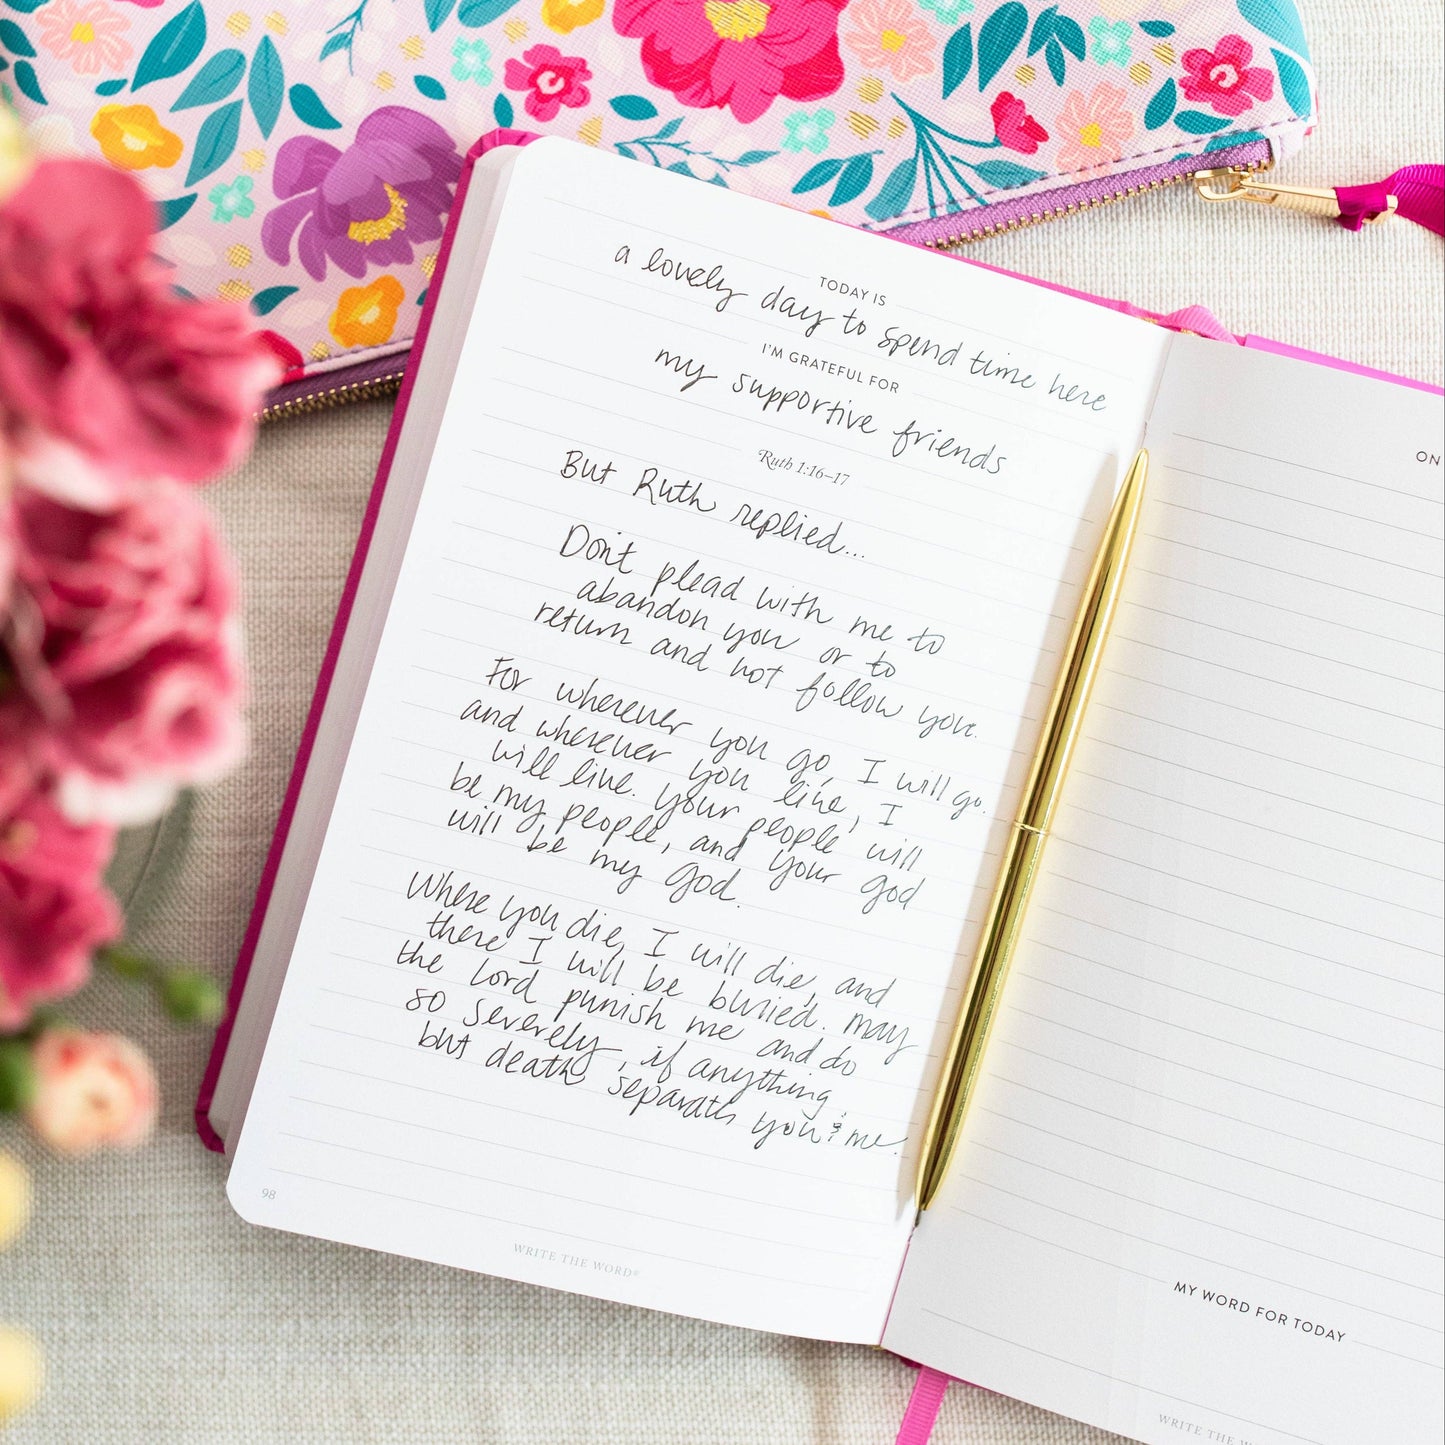 TODAY IS
a lovely day to spend time here
I'M GRATEFUL FOR
my supportive friends
Ruth 1:16–17
But Ruth replied...
Don't plead with me to
abandon you or to
return and not follow you.
For wherever you go, I will go.
and wherever you live, I
will live. your people will
be my people, and your God
will be my God.
Where you die, I will die, and
there I will be buried. may
the Lord punish me and do
so severely, if anything
but death separates you & me.
98
WRITE THE WORD®
ON
MY WORD FOR TODAY
WRITE THE W